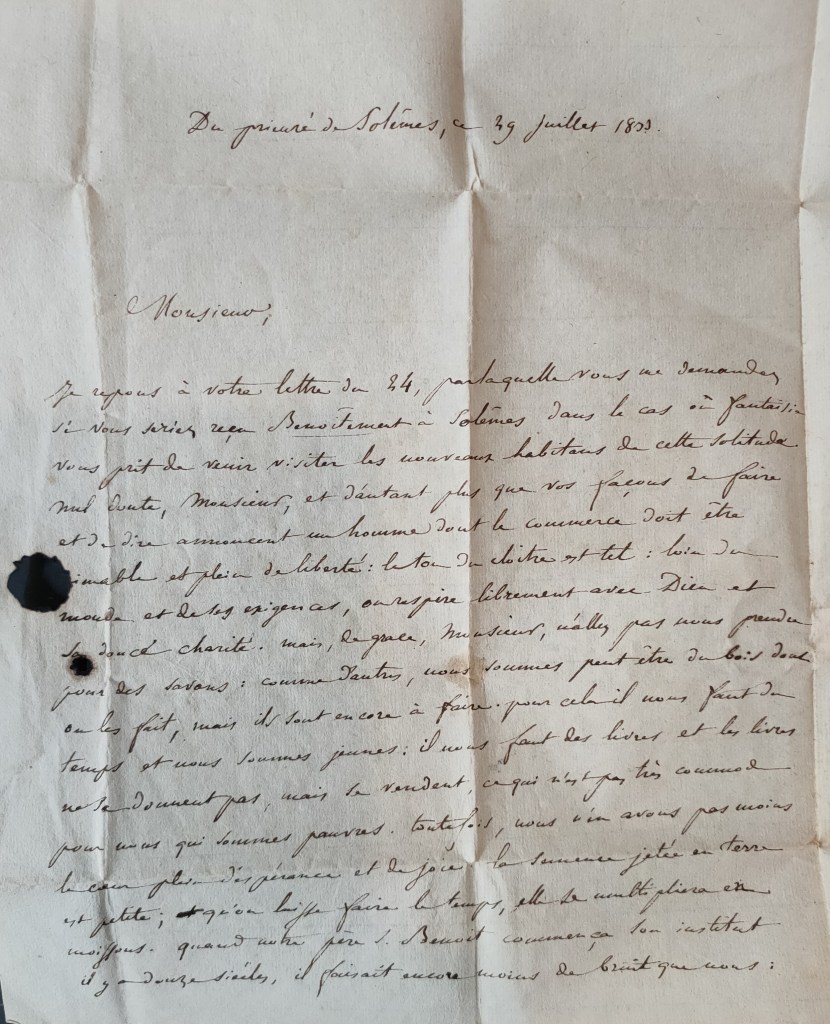 Du prieuré de Solêmes, ce 29 juillet 1833.
Monsieur,
Je repons à votre lettre du 24, par laquelle vous me demandez
si vous seriez reçu Benoîtement à Solêmes dans le cas où fantaisie
vous prit de venir visiter les nouveaux habitans de cette solitude
nul doute, Monsieur, et d'autant plus que vos façons de faire
et de dire annoncent un homme dont le commerce doit être
aimable et plein de liberté : le ton du cloître est tel : loin du
monde et de ses exigences, on respire librement avec Dieu et
sa douce charité. mais, de grace, Monsieur, n'allez pas nous prendre
pour des savans : comme d'autres, nous sommes peut être du bois dont
on les fait, mais ils sont encore à faire. pour cela il nous faut du
temps et nous sommes jeunes : il nous faut des livres et les livres
ne se donnent pas, mais se vendent, ce qui n'est pas très commode
pour nous qui sommes pauvres. toutefois, nous n'en avons pas moins
le cœur plein d'espérance et de joie. la semence jetée en terre
est petite ; qu'on laisse faire le temps, elle se multipliera en
moissons. quand notre père S. Benoit commença son institut
il y a douze siècles, il faisait encore moins de bruit que nous :